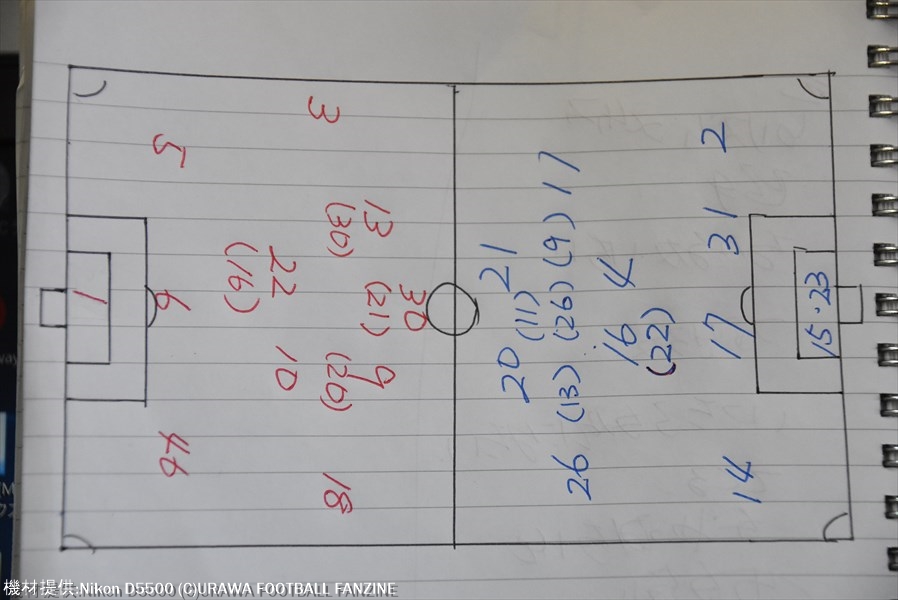 3
5
13
(30)
22
(16)
30
(21)
1
6
9
(20)
10
46
18
2
17
31
21
(9)
4
(11)
(26)
15・23
16
(22)
17
20
(13)
26
14
機材提供:Nikon D5500 (C)URAWA FOOTBALL FANZINE